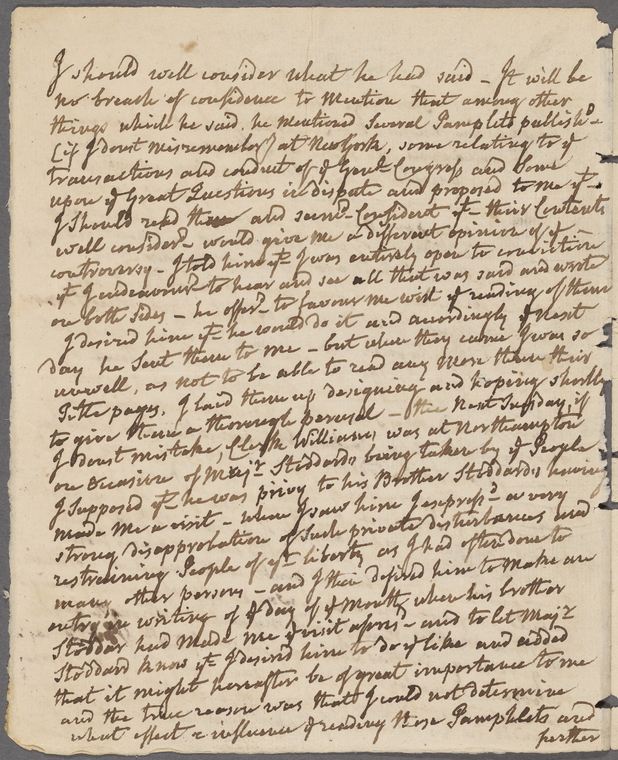 I should well consider what he had said - It will be
no breach of confidence to mention that among other
things which he said, he mentioned Several Pamplets publish'd
(if I dont misremember) at New York, some relating to ye
transactions and conduct of ye Genl. Congress and Some
upon ye Great Questions in disput and proposed to me yt
I should read them and seem'd Confident yt their Contents
well consider'd would give me a different opinion of ye
controversy - I told him yt I was entirely open to conviction
yt I endeavour'd to hear and see all that was said and wrote
on both sides - he offer'd to favour me with ye reading of them
I desired him yt he would do it and accordingly ye next
Day he Sent them to me - but when they came I was so
unwell, as not to be able to read any more than their
Title pages, I laid them up designing and hoping shortly
to give them a thorough perusal - the Next Tuesday, if
I dont mistake, Clerk Williams was at Northampton
on occasion of Majr. Stoddards being taken by ye People
I Supposed yt he was privy to his Brother Stoddards having
made me a visit - when I saw him I express'd a very
strong disapprobation of Such private disturbances and
restraining People of yr. liberty as I had often done to
many other persons - and I then desired him to make an
entry in writing of ye Day of ye Month when his brother
Stoddar had Made me ye visit afores'd - and to let Majr
Stoddard know yt I desir'd him to do ye like and added
that it might hereafter be of great importance to me
and the true reason was that I could not determine
what effect & influence ye reading these Pamphlets and
further